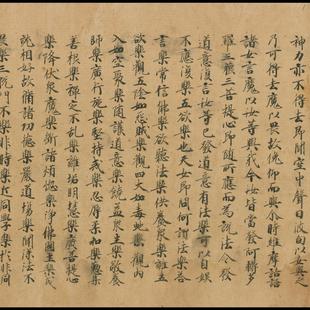 神力亦不得去即聞空中聲曰波旬以女與之
乃可得去魔以畏故俛仰而與尒時維摩詰語
諸女言魔以汝等與我今汝皆當發阿耨多
羅三藐三菩提心即隨所應而為說法令發
道意復言汝等已發道意有法樂可以自娛
不應復樂五欲樂也天女即問何謂法樂荅
言樂常信佛樂欲聽法樂供養衆樂離五
欲樂觀五陰如怨賊樂觀四大如毒虵樂觀內
入如空聚樂隨護道意樂饒益衆生樂敬養
師樂廣行施樂堅持戒樂忍辱柔和樂懃集
善根樂禪定不亂樂離垢明慧樂廣菩提心
樂降伏衆魔樂斷諸煩惱樂淨佛國土樂成
就相好故脩諸功德樂嚴道場樂聞深法不
畏樂三脫門不樂非時樂近同學樂於非同